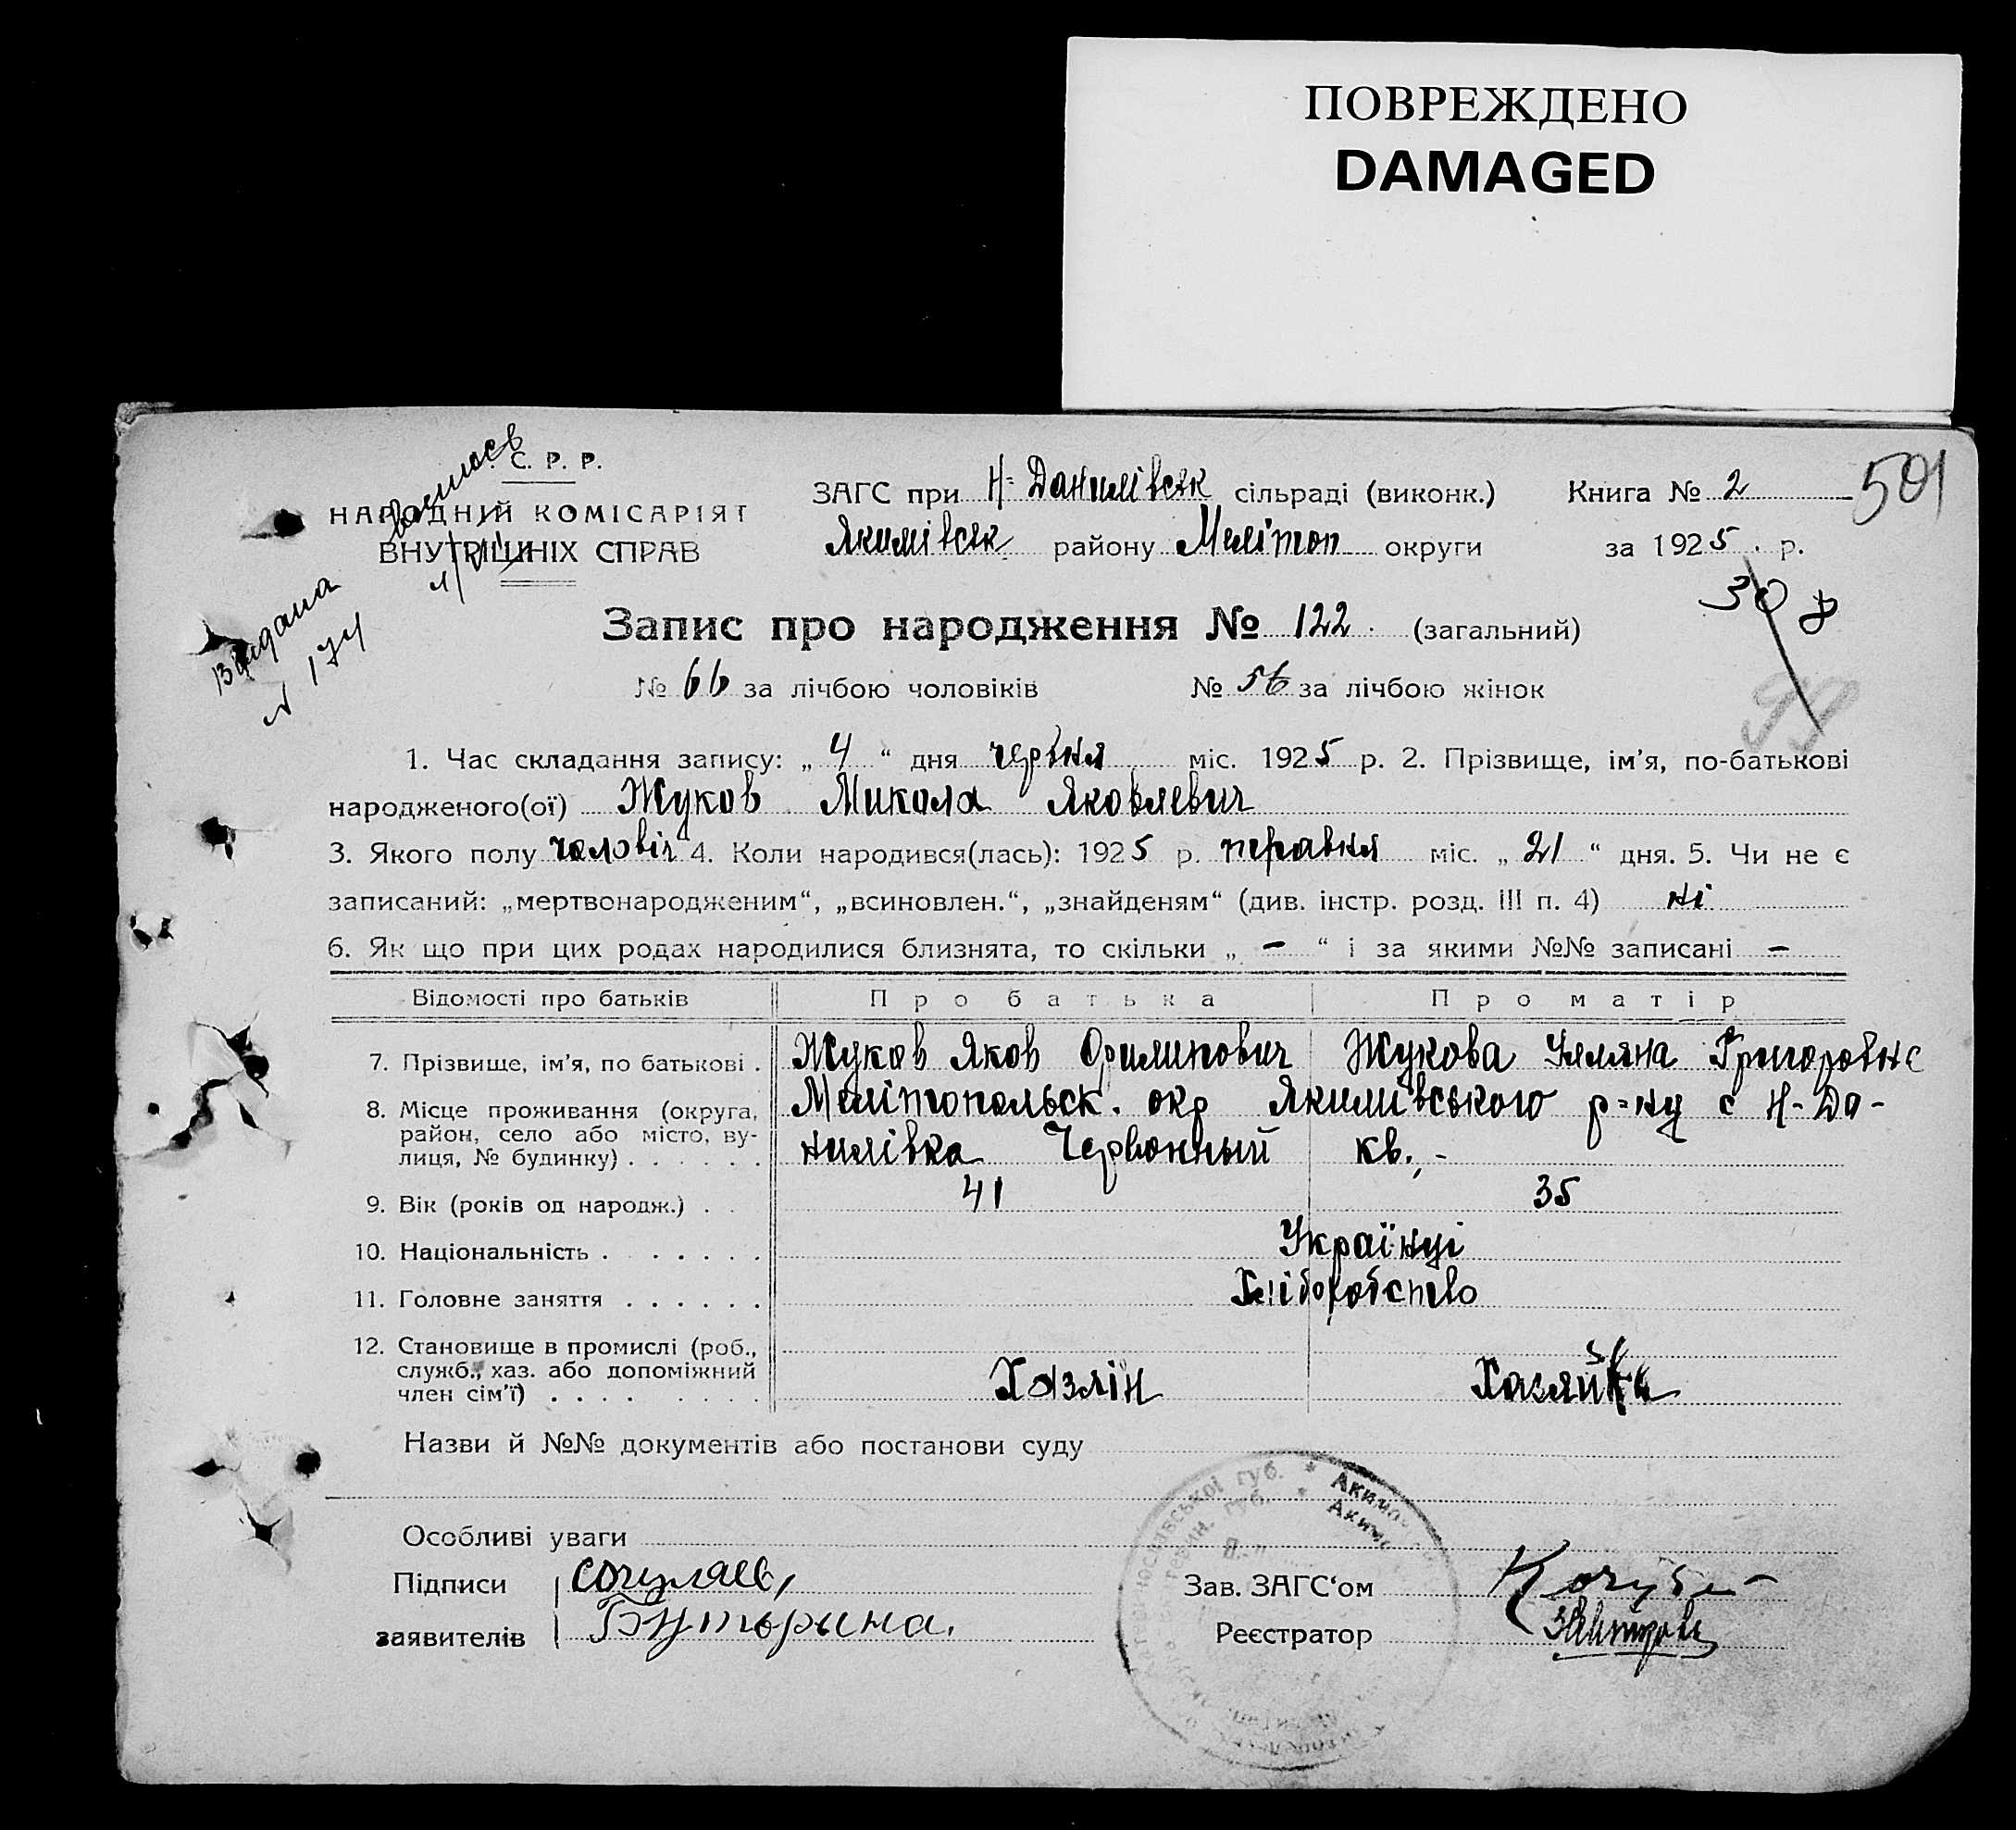 ПОВРЕЖДЕНО
DAMAGED
С. Р. Р.
НАРОДНІЙ КОМІСАРІЯТ
ВНУТРІШНІХ СПРАВ
Видана
174
ЗАГС при Н-Данилівськ сільраді (виконк.) Книга № 2 501
Якимівськ району Меліпоп округи за 1925 р.
Запис про народження № 122 (загальний)
308
№ 66 за лічбою чоловіків № 56 за лічбою жінок
99
1. Час складання запису: „ 4 “ дня червня міс. 1925 р. 2. Прізвище, ім’я, по-батькові
народженого(ої) Жуков Микола Яковлевич
3. Якого полу чоловіч 4. Коли народився(лась): 1925 р. травня міс. „ 21 “ дня. 5. Чи не є
записаний: „мертвонародженим“, „всиновлен.“, „знайденям“ (див. інстр. розд. III п. 4) ні
6. Як що при цих родах народилися близнята, то скільки „ – “ і за якими №№ записані –
Відомості про батьків Про батька Про матір
7. Прізвище, ім’я, по батькові . Жуков Яков Филипович Жукова Уляна Григоровна
8. Місце проживання (округа, район, село або місто, вулиця, № будинку) . . . . . . Меліпопольськ. окр Якимівського р=ну с Н-Да-
нилівка Червонный кв. -
9. Вік (років од народж.) . . 41 35
10. Національність . . . . . . . Українці
11. Головне заняття . . . . . . Хліборобство
12. Становище в промислі (роб.,
служб., хаз. або допоміжний
член сім’ї) . . . . . . . . Хазяін Хазяйка
Назви й №№ документів або постанови суду
Особливі уваги
Підписи
Зав. ЗАГС‘ом Кочубей
заявителів Бутырина.
Реєстратор